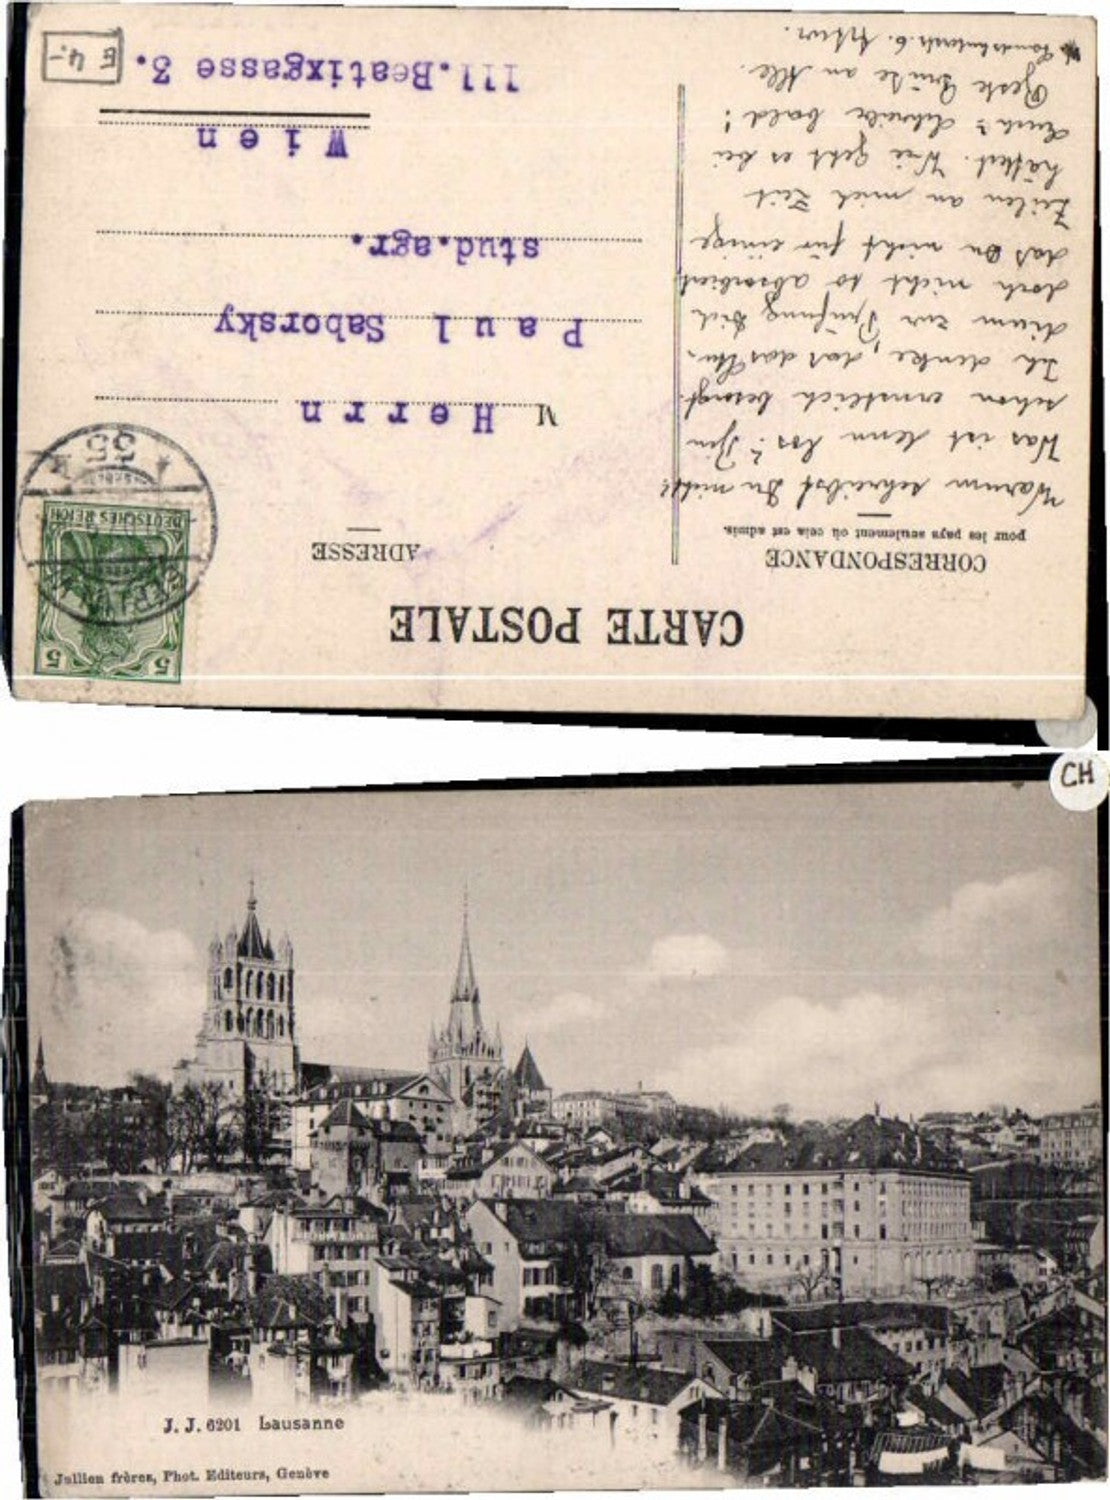 CARTE POSTALE
CORRESPONDANCE
pour les pays seulement où cela est admis.
ADRESSE
Warum schreibst Du nicht?
Was ist denn los? Bin
schon ernstlich besorgt.
Ich denke, daß das Stu-
dium zur Prüfung Dich
doch nicht so absorbiert,
daß Du nicht für einige
Zeilen an mich Zeit
hättest. Wie geht es bei
Euch? Schreibe bald!
Beste Grüße an Alle.
6.
M Herrn
Paul Saborsky
stud.agr.
Wien
III.Beatixgasse 3.
E 4.-
5 5
DEUTSCHES REICH
BERLIN
35
CH
J. J. 6201 Lausanne
Jullien frères, Phot. Editeurs, Genève